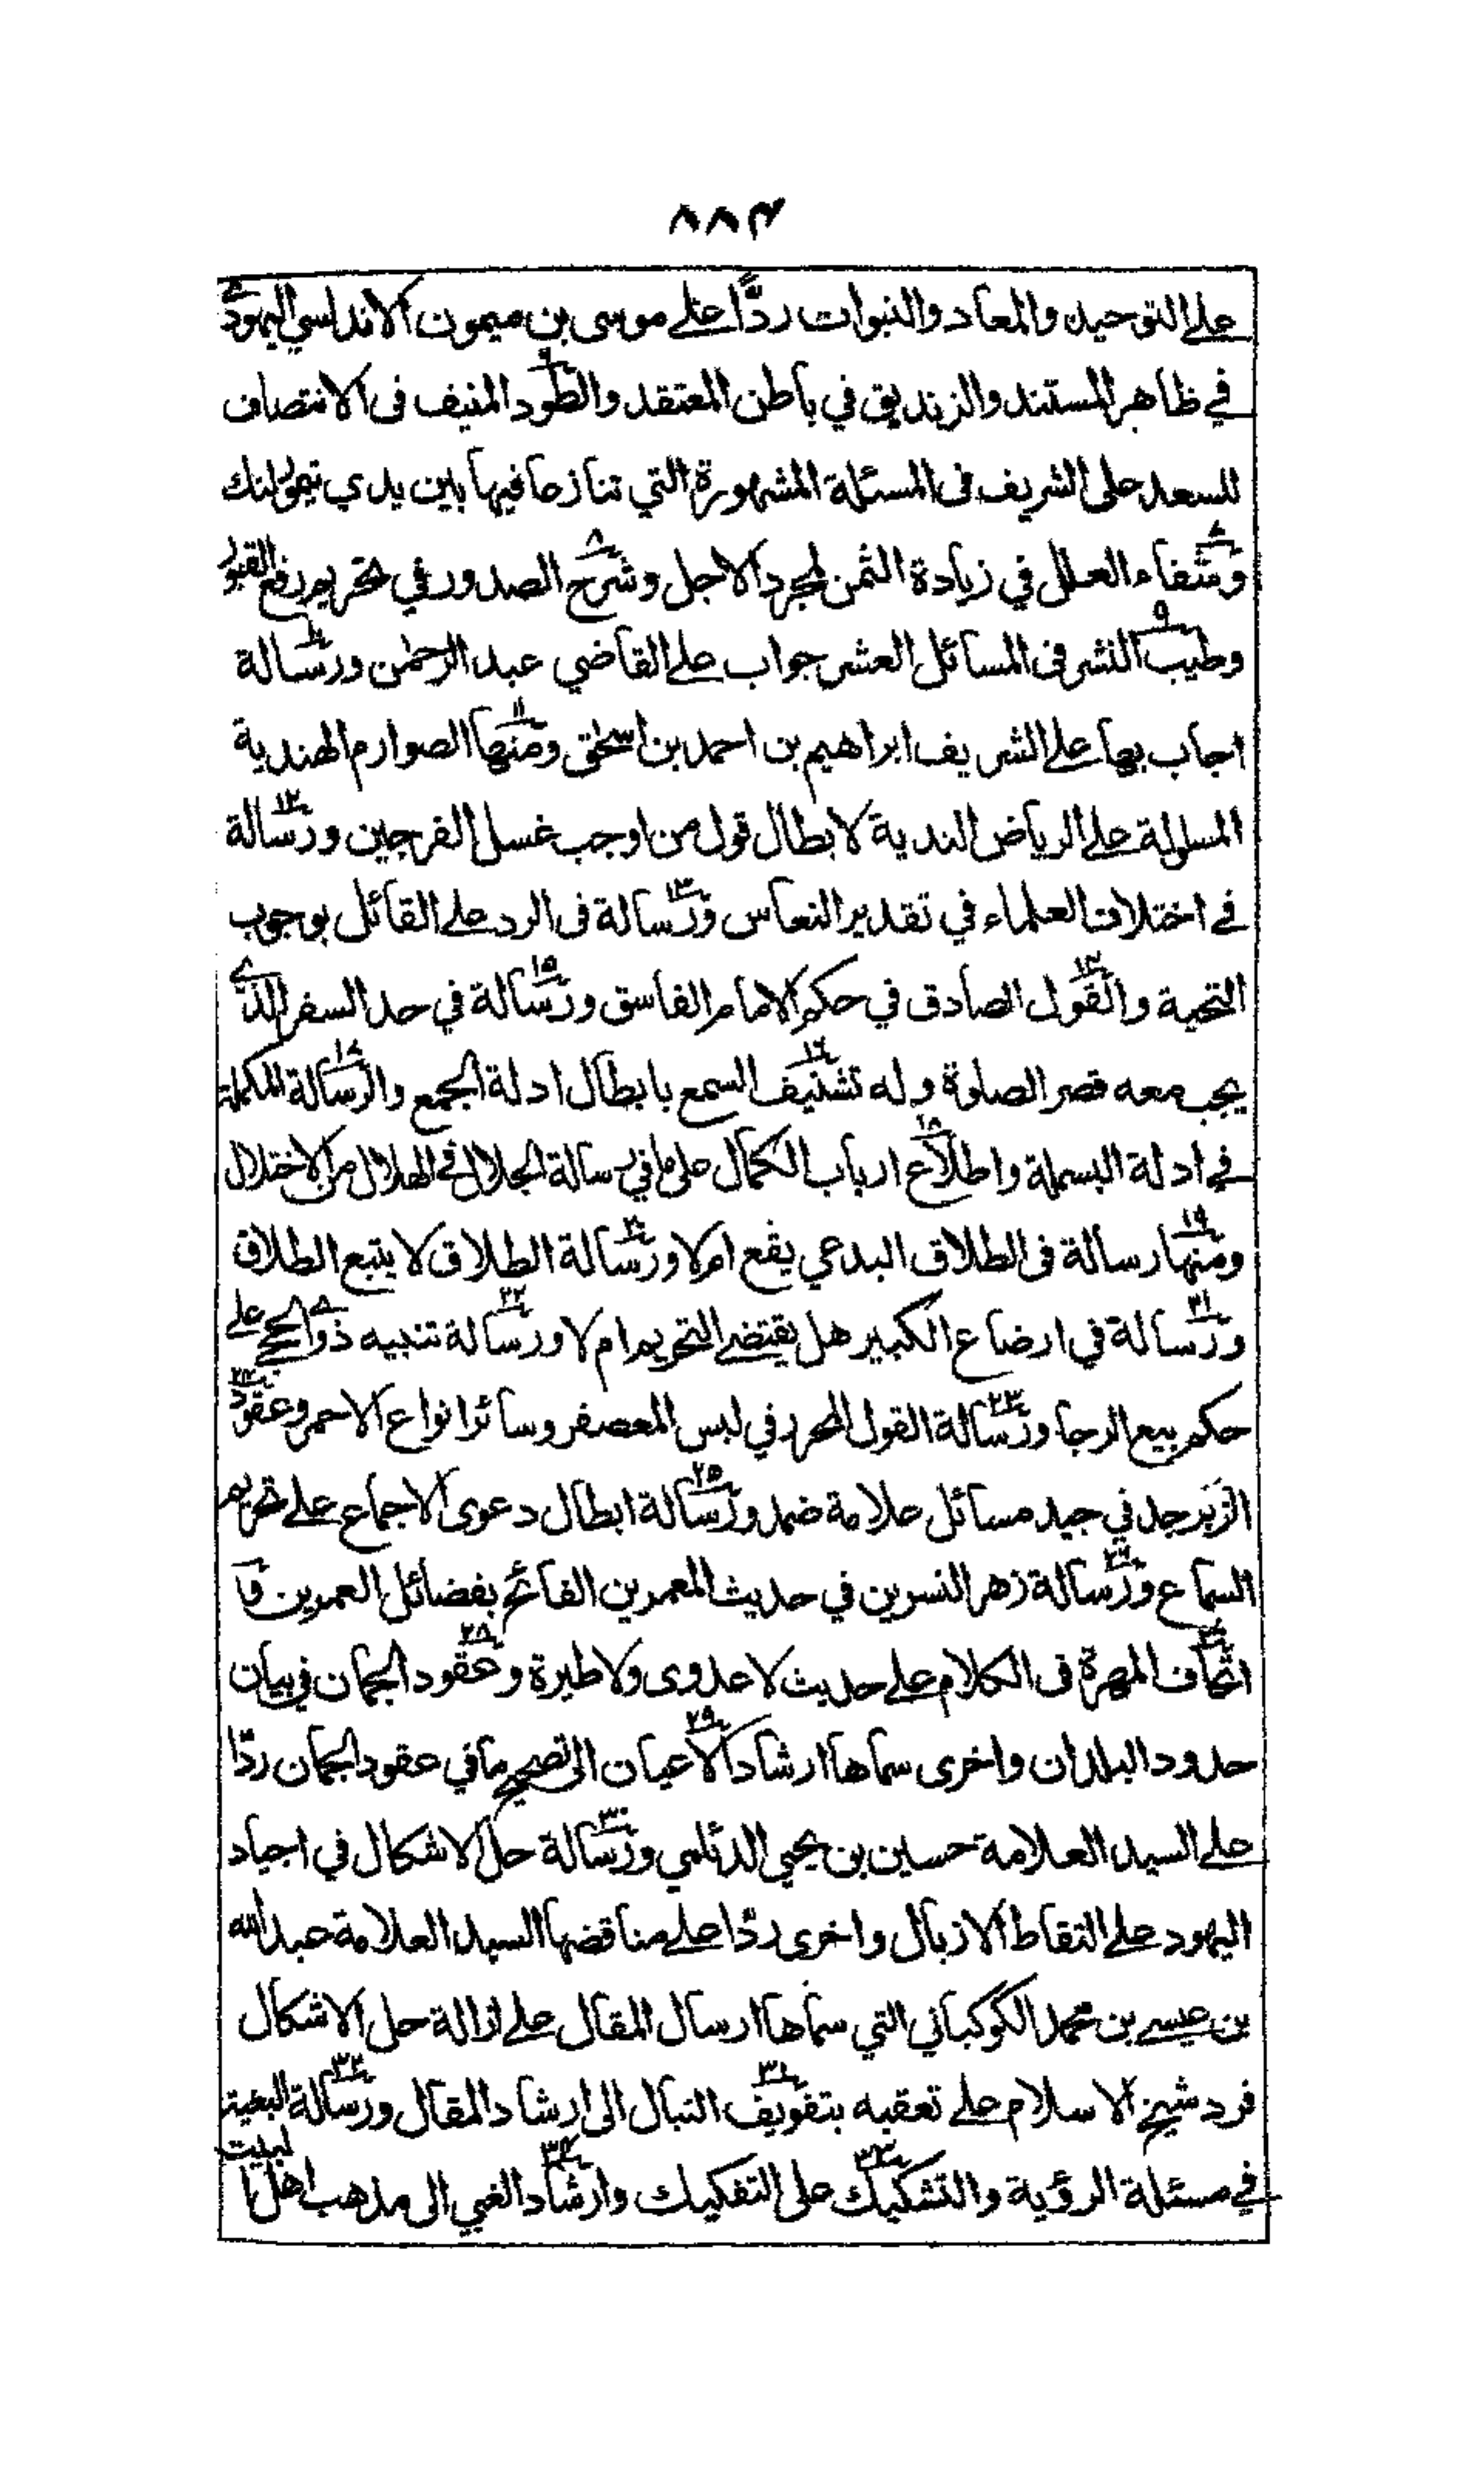 ٨٨٣
على التوحيد والمعاد والنبوات ردًّا على موسى بن ميمون الاندلسي اليهودي
في ظاهر المستند والزنديق في باطن المعتقد والطود المنيف فى الانتصاف
للسعد على الشريف فى المسئلة المشهورة التي تنازعا فيها بين يدي تيمورلنك
وشفاء العلل في زيادة الثمن لمجرد الاجل وشرح الصدور في تحريم رفع القبور
وطيب النشر فى المسائل العشر جواب على القاضي عبد الرحمٰن ورسالة
اجاب بها على الشريف ابراهيم بن احمد بن اسحٰق ومنها الصوارم الهندية
المسلولة على الرياض الندية لابطال قول من اوجب غسل الفرجين ورسالة
في اختلاف العلماء في تقدير النعاس ورسالة فى الرد على القائل بوجوب
التحية والقول الصادق في حكم الامام الفاسق ورسالة في حد السفر الذي
يجب معه قصر الصلوة وله تشنيف السمع بابطال ادلة الجمع والرسالة المكملة
في ادلة البسملة واطلاع ارباب الكمال على ما في رسالة الجلال في الهلال من الاختلال
ومنها رسالة فى الطلاق البدعي يقع ام لا ورسالة الطلاق لا يتبع الطلاق
ورسالة في ارضاع الكبير هل يقتضي التحريم ام لا ورسالة تنبيه ذوي الحجى على
حكم بيع الرجا ورسالة القول المحرر في لبس المعصفر وسائر انواع الاحمر وعقود
الزبرجد في جيد مسائل علامة ضمد ورسالة ابطال دعوى الاجماع على تحريم
السماع ورسالة زهر النسرين في حديث المعمرين الفائح بفضائل العمرين وا
اتحاف المهرة فى الكلام على حديث لا عدوى ولا طيرة وعقود الجمان في بيان
حدود البلدان واخرى سماها ارشاد الاعيان الى تصحيح ما في عقود الجمان ردّا
على السيد العلامة حسين بن يحيى الديلمي ورسالة حل الاشكال في اجباد
اليهود على التقاط الازبال واخرى ردّا على مناقضها السيد العلامة عبدالله
بن عيسى بن محمد الكوكباني التي سماها ارسال المقال على ازالة حل الاشكال
فرد شيخ الاسلام على تعقبه بتفويف النبال الى ارشاد المقال ورسالة البغية
في مسئلة الرؤية والتشكيك على التفكيك وارشاد الغبي الى مذهب اهل البيت